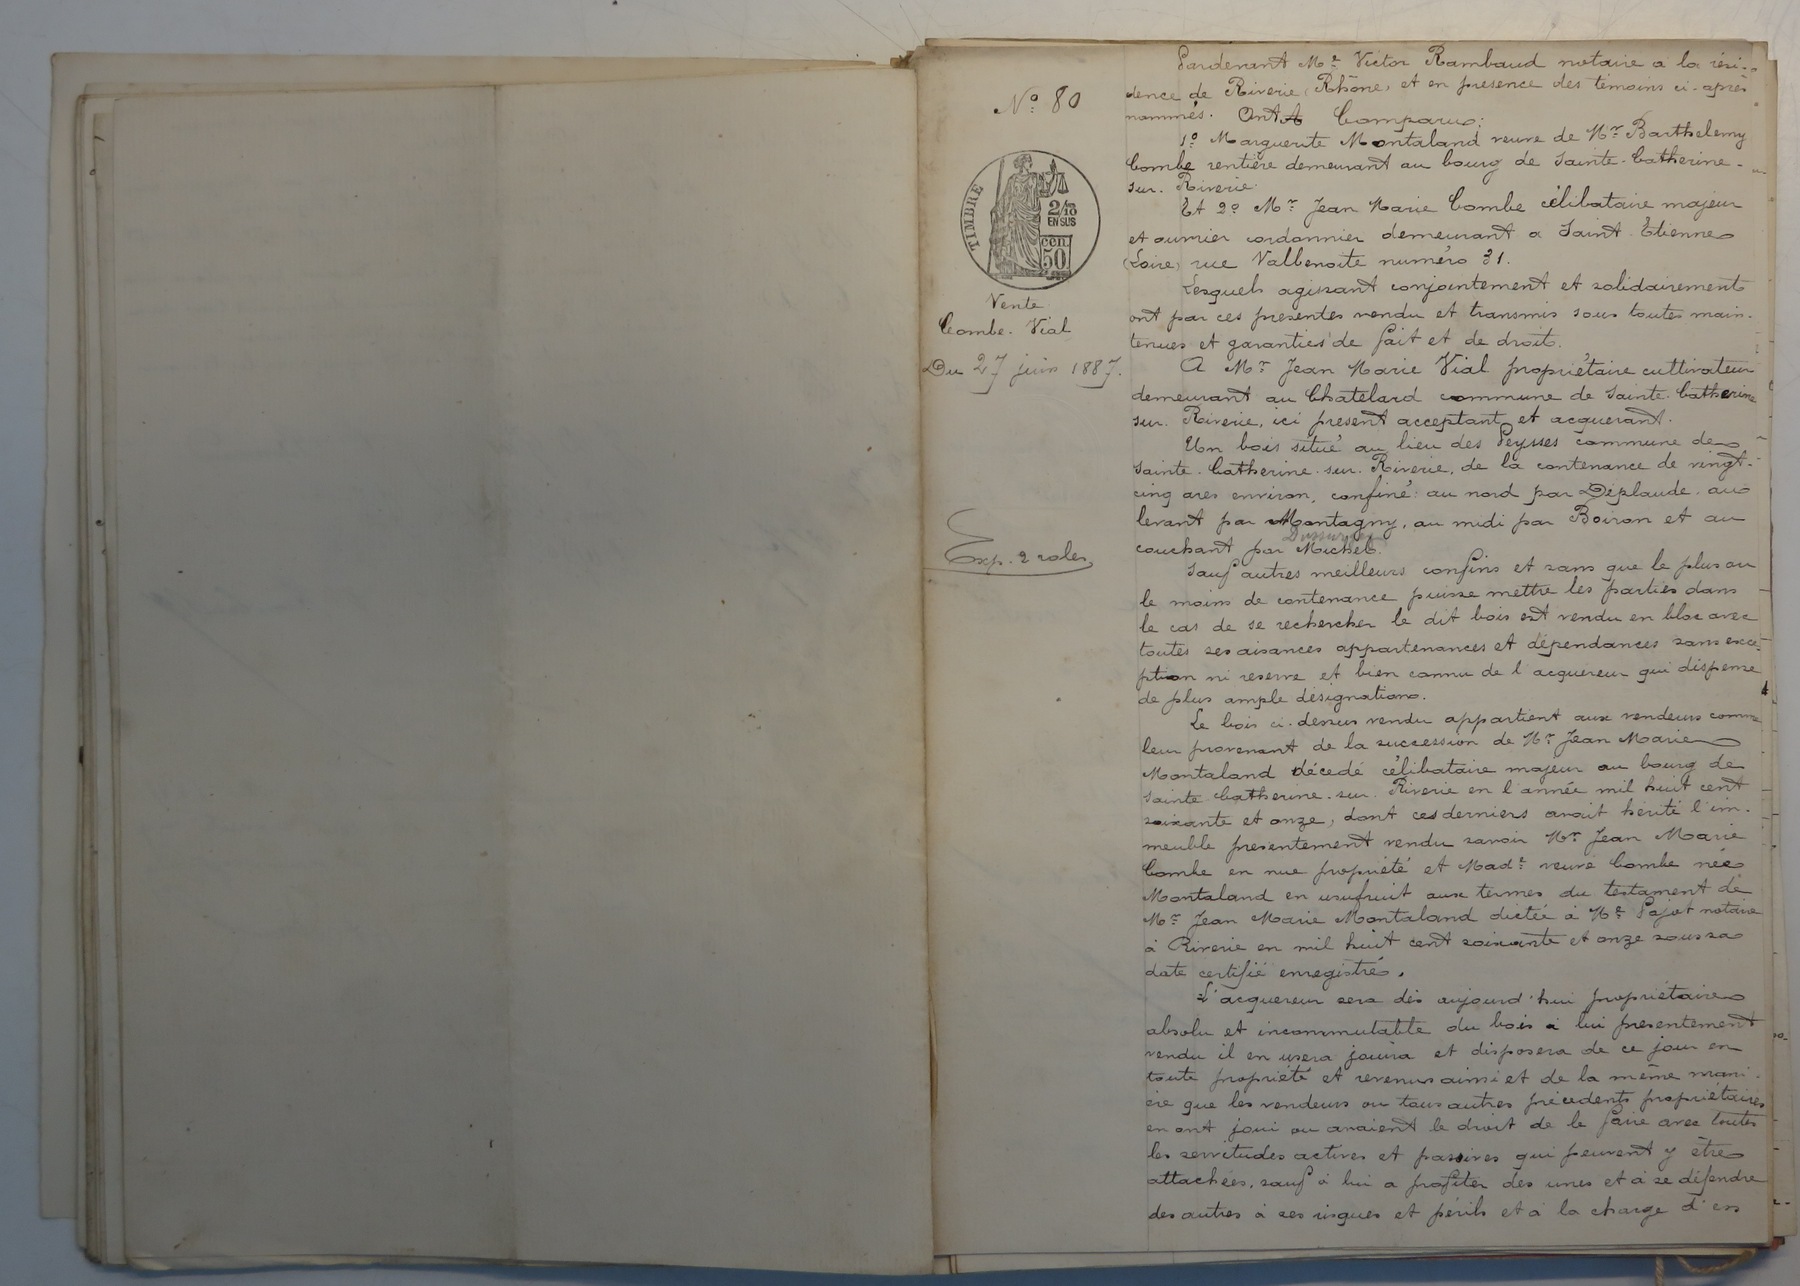 N° 80
TIMBRE
2/10
EN SUS
cen.
50
Vente
Combe. Vial
Du 27 juin 1887.
Exp. 2 roles
Pardevant Me Victor Rambaud notaire a la rési-
dence de Riverie (Rhône) et en presence des témoins ci-après
nommés. Ont Comparu:
1° Marguerite Montaland veuve de Mr Barthelemy
Combe rentière demeurant au bourg de Sainte-Catherine-
sur-Riverie.
Et 2° Mr Jean Marie Combe célibataire majeur
et ouvrier cordonnier demeurant a Saint-Etienne
(Loire) rue Valbenoite numéro 31.
Lesquels agissant conjointement et solidairement
ont par ces presentes vendu et transmis sous toutes main-
tenues et garanties de fait et de droit.
A Mr Jean Marie Vial propriétaire cultivateur
demeurant au Chatelard commune de Sainte-Catherine
sur-Riverie, ici present acceptant et acquerant.
Un bois situé au lieu des Peysses commune de
Sainte-Catherine-sur-Riverie, de la contenance de vingt-
cinq ares environ, confiné: au nord par Déplaude, au
levant par Montagny, au midi par Boiron et au
couchant par Michel.
Sauf autres meilleurs confins et sans que le plus ou
le moins de contenance puisse mettre les parties dans
le cas de se rechercher le dit bois est vendu en bloc avec
toutes ses aisances appartenances et dépendances sans exce-
ption ni reserve et bien connu de l'acquereur qui dispense
de plus ample désignation.
Le bois ci-dessus vendu appartient aux vendeurs comme
leur provenant de la succession de Mr Jean Marie
Montaland décedé célibataire majeur au bourg de
Sainte Catherine-sur-Riverie en l'année mil huit cent
soixante et onze, dont ces derniers avait hérité l'im-
meuble presentement vendu savoir Mr Jean Marie
Combe en nue propriété et Made veuve Combe née
Montaland en usufruit aux termes du testament de
Mr Jean Marie Montaland dictée à Me Pajot notaire
à Riverie en mil huit cent soixante et onze sous sa
date certifié enregistré.
L'acquereur sera dès aujourd'hui propriétaire
absolu et incommutable du bois à lui presentement
vendu il en usera jouira et disposera de ce jour en
toute propriété et revenus ainsi et de la même mani-
ère que les vendeurs ou tous autres précedents propriétaires
en ont joui ou avaient le droit de le faire avec toutes
les servitudes actives et passives qui peuvent y être
attachées, sauf à lui a profiter des unes et à se défendre
des autres à ses risques et périls et à la charge d'en